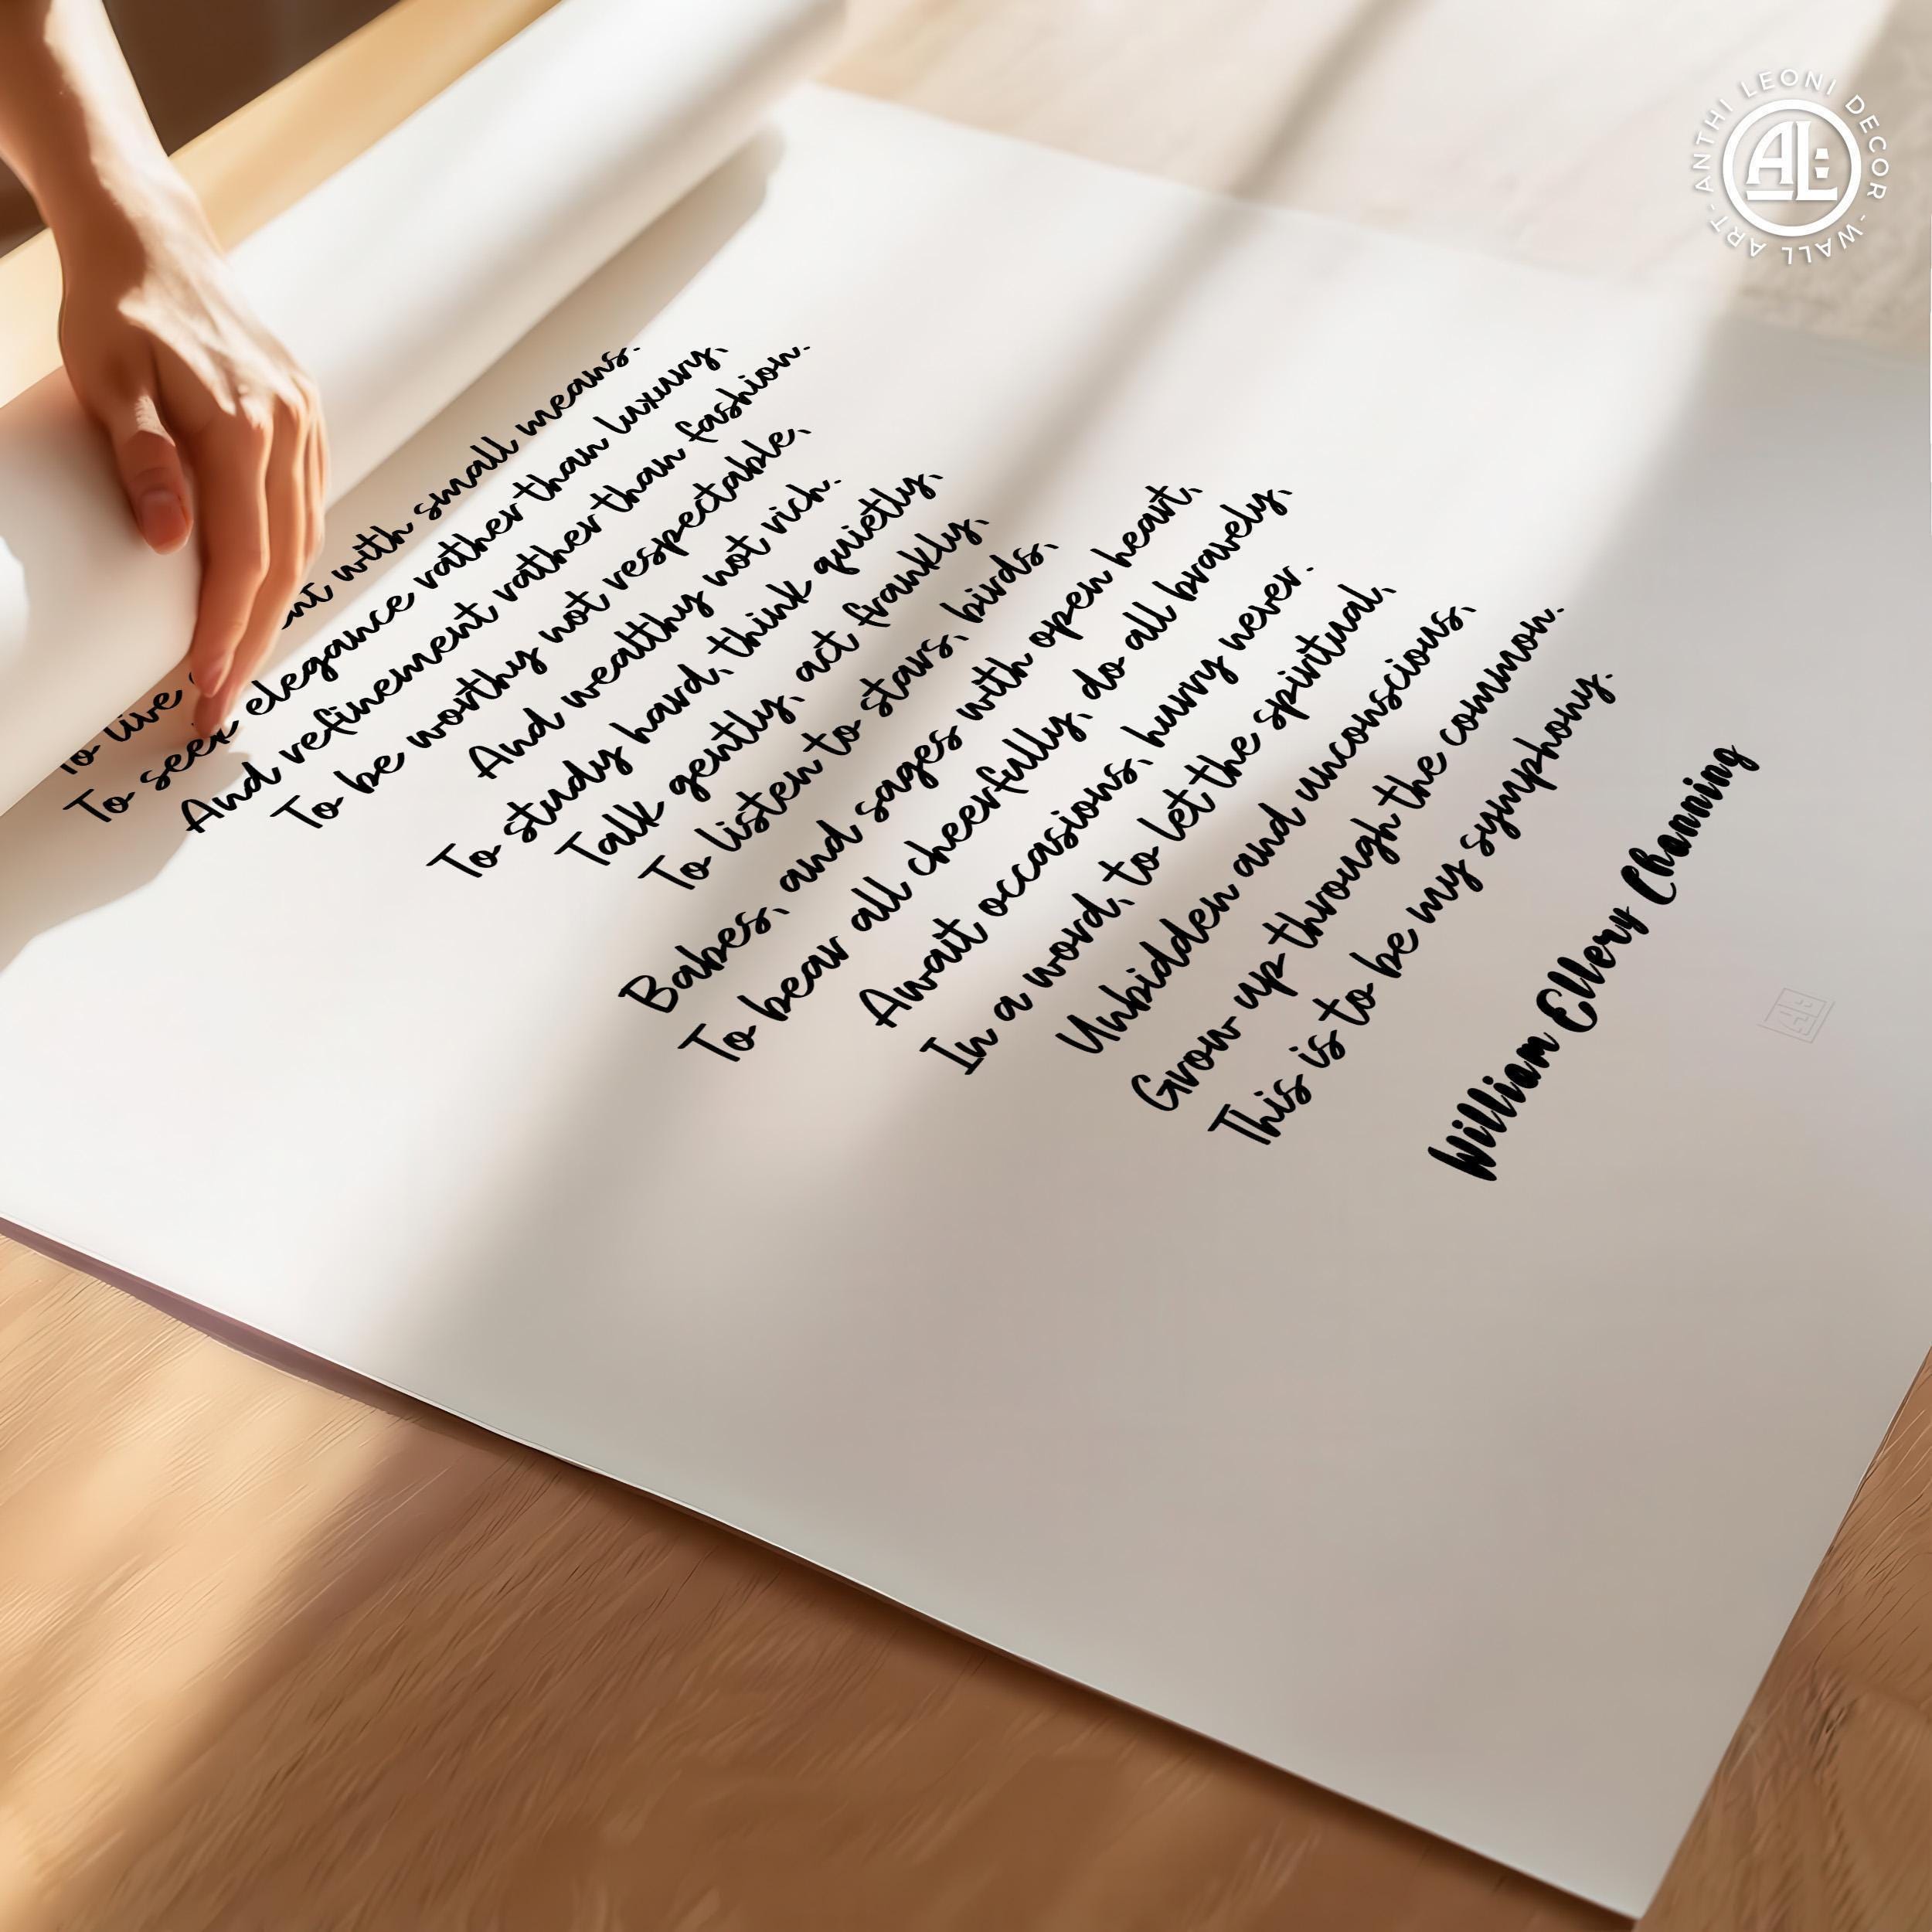 To live ent with small means.
To seek elegance rather than luxury,
And refinement rather than fashion.
To be worthy not respectable,
And wealthy not rich.
To study hard, think quietly,
Talk gently, act frankly,
To listen to stars, birds,
Babes, and sages with open heart,
To bear all cheerfully, do all bravely,
Await occasions, hurry never.
In a word, to let the spiritual,
Unbidden and unconscious,
Grow up through the common.
This is to be my symphony.
William Ellery Channing
ANTHI LEONI DECOR - WALL ART -
AL